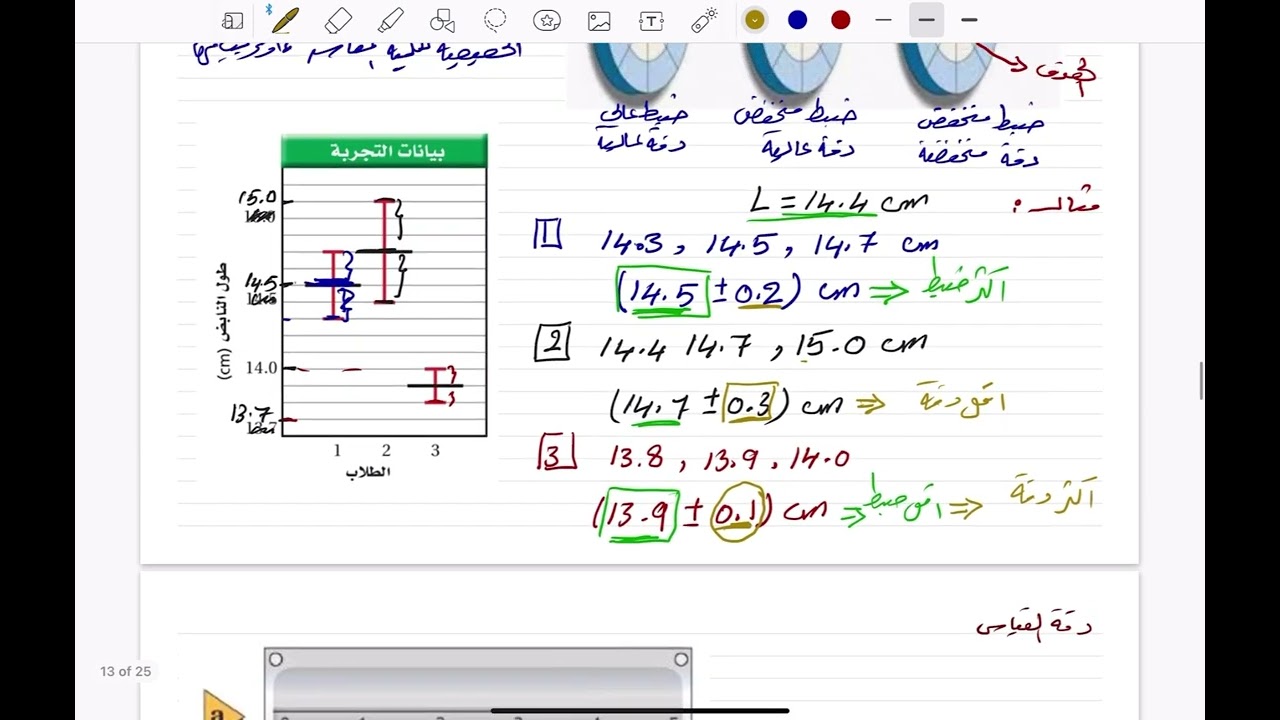 الهدف
ضبط منخفض
دقة منخفضة
ضبط منخفض
دقة عالية
ضبط عالي
دقة عالية
مثال :
L = 14.4 cm
1 14.3 , 14.5 , 14.7 cm
(14.5 ± 0.2) cm ⇒ اكثر ضبط
2 14.4 14.7 , 15.0 cm
(14.7 ± 0.3) cm ⇒ اقل دقة
3 13.8 , 13.9 , 14.0
(13.9 ± 0.1) cm ⇒ اقل ضبط ⇒ اكثر دقة
بيانات التجربة
طول النابض (cm)
15.0
14.5
14.0
13.7
1 2 3
الطلاب
دقة القياس
a
0 1 2 3 4 5
13 of 25